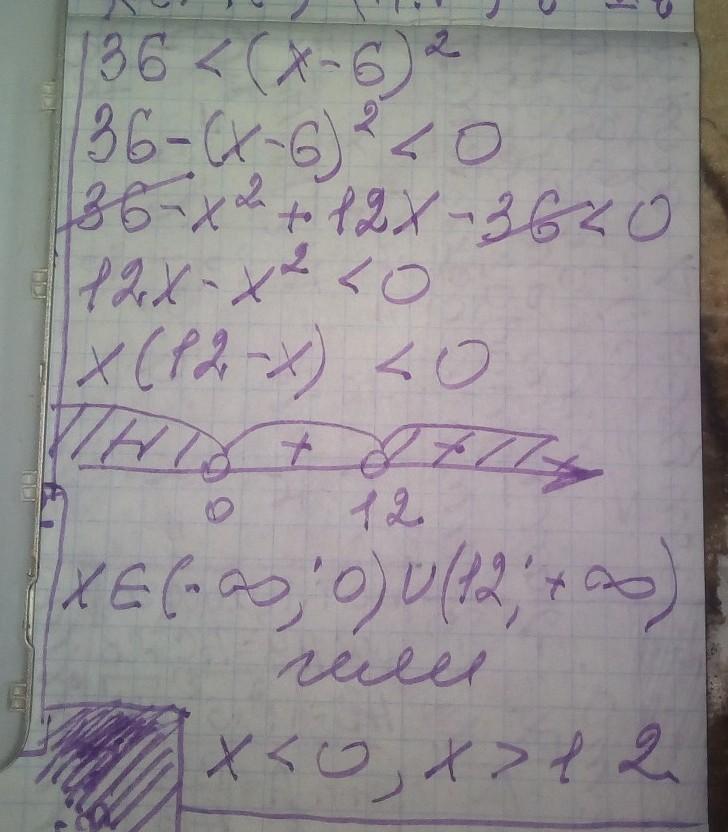 36 < (x-6)²
36-(x-6)² < 0
36-x²+12x-36<0
12x-x² < 0
x(12-x) < 0
+
0 12
x∈(-∞; 0)∪(12; +∞)
или
x<0, x>12